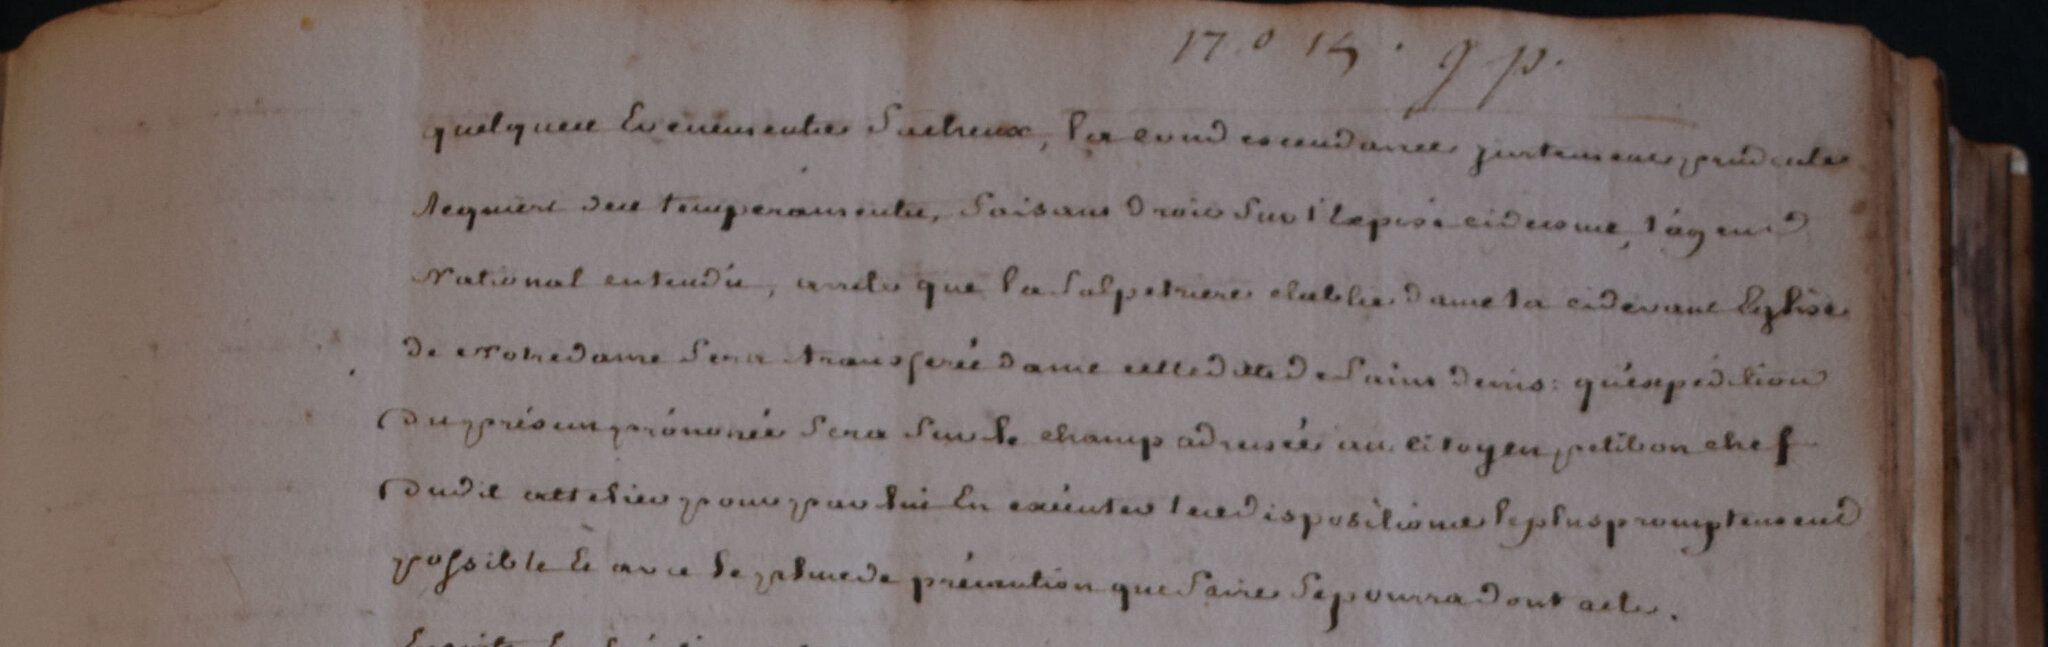 17.º 14. g p.
quelques Evenements facheux, la condescendance justement prudente
Requiert des temperaments, faisant droit sur l'Exposé cidessus, l'agent
National entendu, arrete que la salpetriere etablie dans la cidevant Eglise
de Notredame sera transferée dans celle dite de saint denis: qu'éxpédition
du présent prononcé sera sur le champ adressée au citoyen petition chef
dudit attelier pour par lui En exécuter les dispositions le plus promptement
possible Et avec le plus de précaution que faire se pourra dont acte.